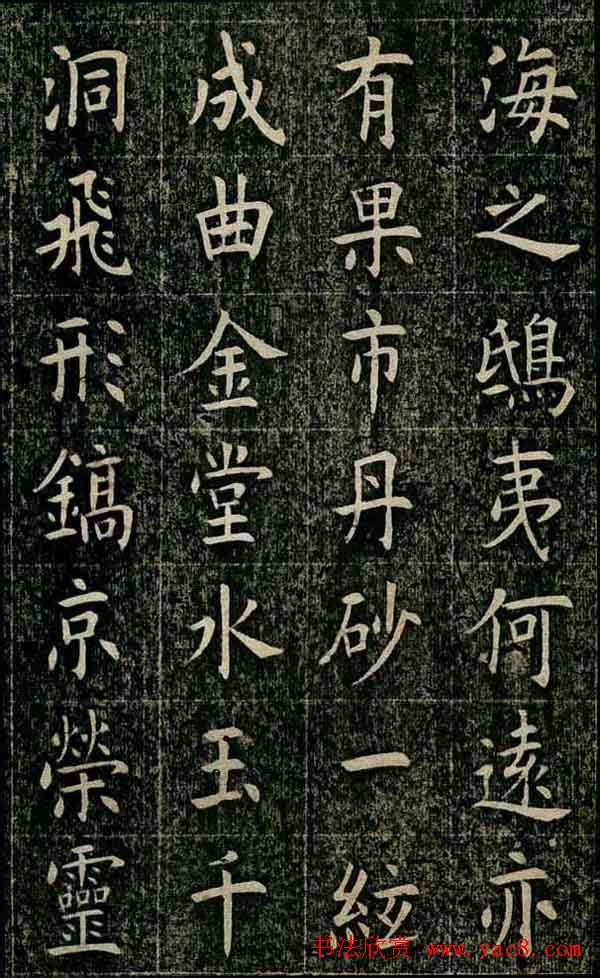 海之鴟夷何遠亦
有果市丹砂一絃
成曲金堂水玉千
洞飛形鎬京榮靈
书法欣赏 www.yac8.com